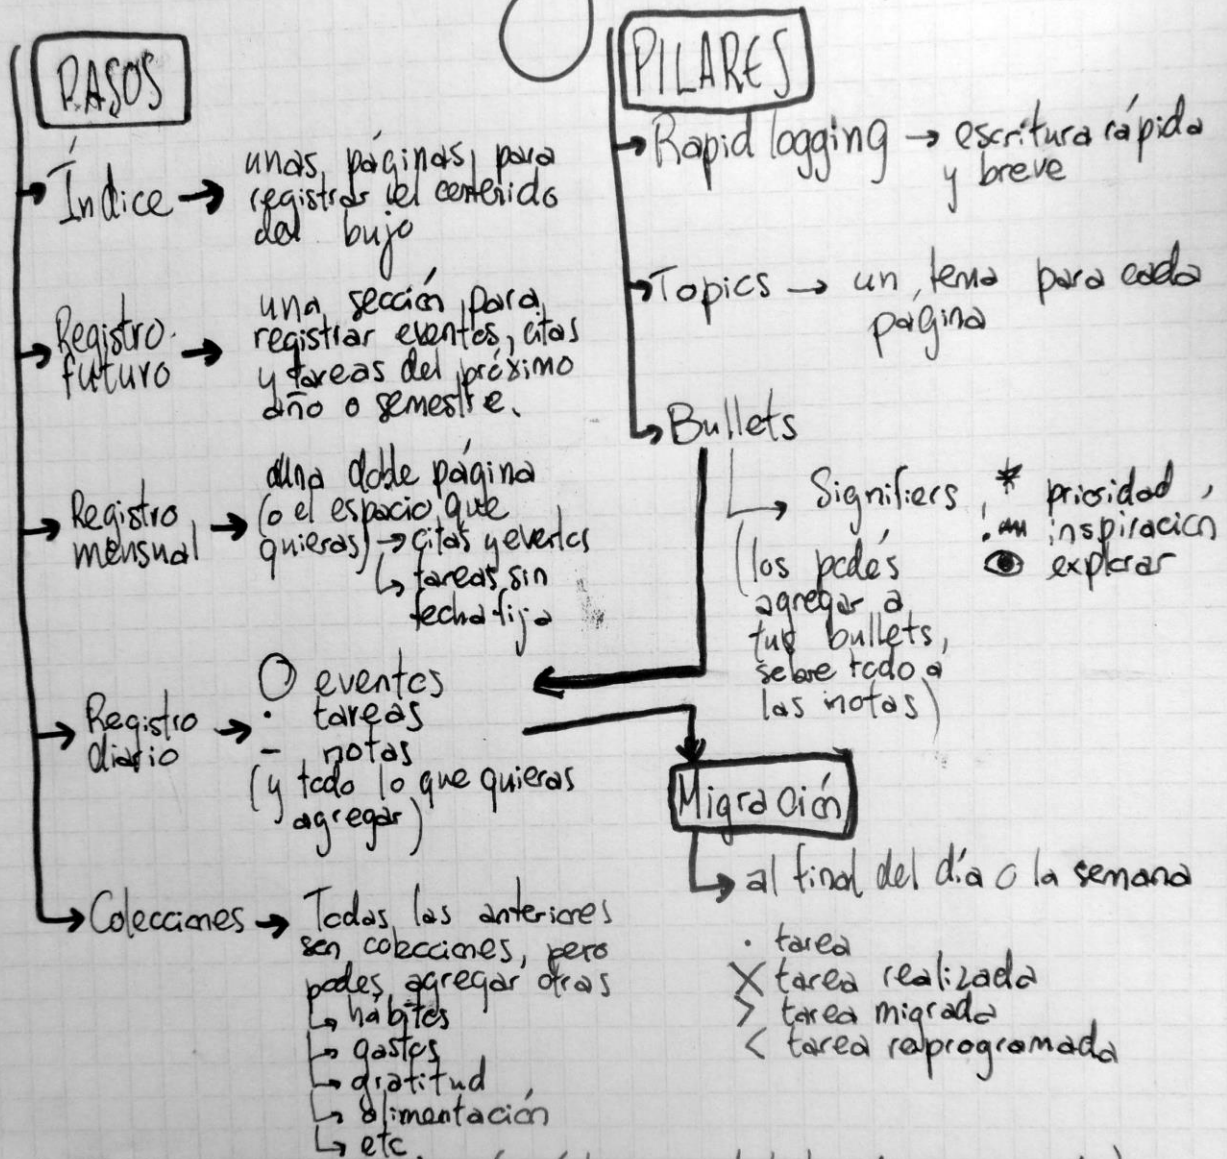 PASOS
Índice → unas páginas para
registrar el contenido
del bujo
Registro
futuro → una sección para
registrar eventos, citas
y tareas del próximo
año o semestre.
Registro
mensual → una doble página
(o el espacio que
quieras) → citas y eventos
↳ tareas sin
fecha fija
Registro
diario → O eventos
· tareas
- notas
(y todo lo que quieras
agregar)
Colecciones → Todas las anteriores
son colecciones, pero
podes agregar otras
↳ hábitos
↳ gastos
↳ gratitud
↳ alimentación
↳ etc.
PILARES
Rapid logging → escritura rápida
y breve
Topics → un tema para cada
página
Bullets
→ Signifiers * prioridad,
inspiración
explorar
(los podés
agregar a
tus bullets,
sobre todo a
las notas)
Migración
↳ al final del día o la semana
· tarea
X tarea realizada
> tarea migrada
< tarea reprogramada